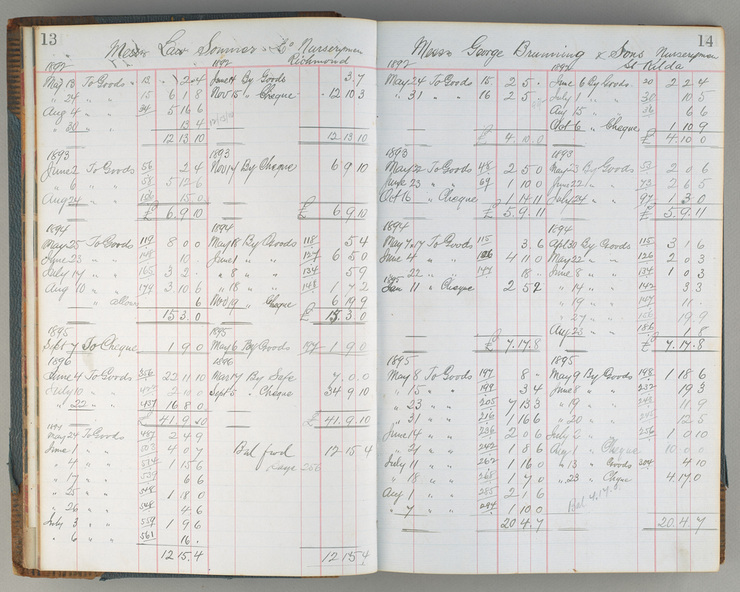 13
Messrs Law Somner & Co Nurserymen
Richmond
1892 1892
May 13 To Goods 13 2 4 June 4 By Goods 3 7
" 24 " " 15 6 1 8 Nov 15 " Cheque 12 10 3
Aug 4 " " 34 5 16 6
" 30 " " 13 4
12 13 10 12 13 10
1893 1893
June 2 To Goods 56 2 4 Nov 14 By Cheque 6 9 10
" 6 " " 58 5 12 6
Aug 24 " " 106 15 0
£ 6 9 10 £ 6 9 10
1894 1894
May 25 To Goods 119 8 0 0 May 18 By Goods 118 5 4
June 23 " " 148 10 June 1 " " 127 6 5 0
July 17 " " 165 3 2 " 8 " " 134 5 9
Aug 10 " " 179 3 10 6 " 18 " " 143 1 7 2
" allow 6 Nov 19 " Cheque 6 19 9
15 3 0 15 3 0
1895 1895
Sept 7 To Cheque 1 9 0 May 6 By Goods 197 1 9 0
1896 1896
June 4 To Goods 22 11 10 By Safe 7 0 0
July 10 " " 2 10 0 Sept 5 " Cheque 34 9 10
" 22 " " 437 16 8 0
£ 41 9 10 £ 41 9 10
May 24 To Goods 497 2 4 9
June 1 " " 4 0 7 Bal fwd 12 15 4
" 4 " " 1 15 6 page 256
" 17 " " 6 6
" 25 " " 548 1 18 0
" 26 " " 548 4 6
July 3 " " 559 1 9 6
" 6 " " 561 16
12 15 4 12 15 4
14
Messrs George Brunning & Sons Nurserymen
St Kilda
1892 1892
May 24 To Goods 15 2 5 June 6 By Goods 20 2 2 4
" 31 " " 16 2 5 July 1 " " 30 10 5
Aug 15 " " 36 6 6
Oct 6 " Cheque 1 10 9
£ 4 10 0 £ 4 10 0
1893 1893
May 22 To Goods 48 2 5 0 May 23 By Goods 53 2 0 6
June 23 " " 69 1 10 0 June 22 " " 73 2 6 5
Oct 16 " Cheque 1 14 11 July 24 " " 97 1 3 0
£ 5 9 11 £ 5 9 11
1894 1894
May 7 To Goods 115 3 6 Apl 30 By Goods 115 3 1 6
June 4 " " 126 4 11 0 May 22 " " 126 2 0 3
" 22 " " 147 18 June 8 " " 134 1 0 3
1895
Jan 11 " Cheque 2 5 2 " 14 " " 142 3 3
" 19 " " 147 11
" 27 " " 156 19 9
Aug 23 " " 186 1 8
£ 7 17 8 £ 7 17 8
1895 1895
May 8 To Goods 197 8 May 9 By Goods 198 1 18 6
" 15 " " 199 3 4 June 8 " " 232 19 3
" 23 " " 205 7 13 3 " 19 " " 1 9
" 31 " " 216 1 16 6 " 20 " " 12 5
June 14 " " 236 2 0 6 July 2 " " 256 1 0 10
" 21 " " 242 1 8 6 Aug 1 " Cheque 10 0 0
July 11 " " 262 1 16 0 " 13 " Goods 304 4 10
" 18 " " 268 1 7 0 " 23 " Chque 4 17 0
Aug 1 " " 285 2 1 6 Bal 4.17.0
" 7 " " 294 1 10 0
20 4 7 20 4 7